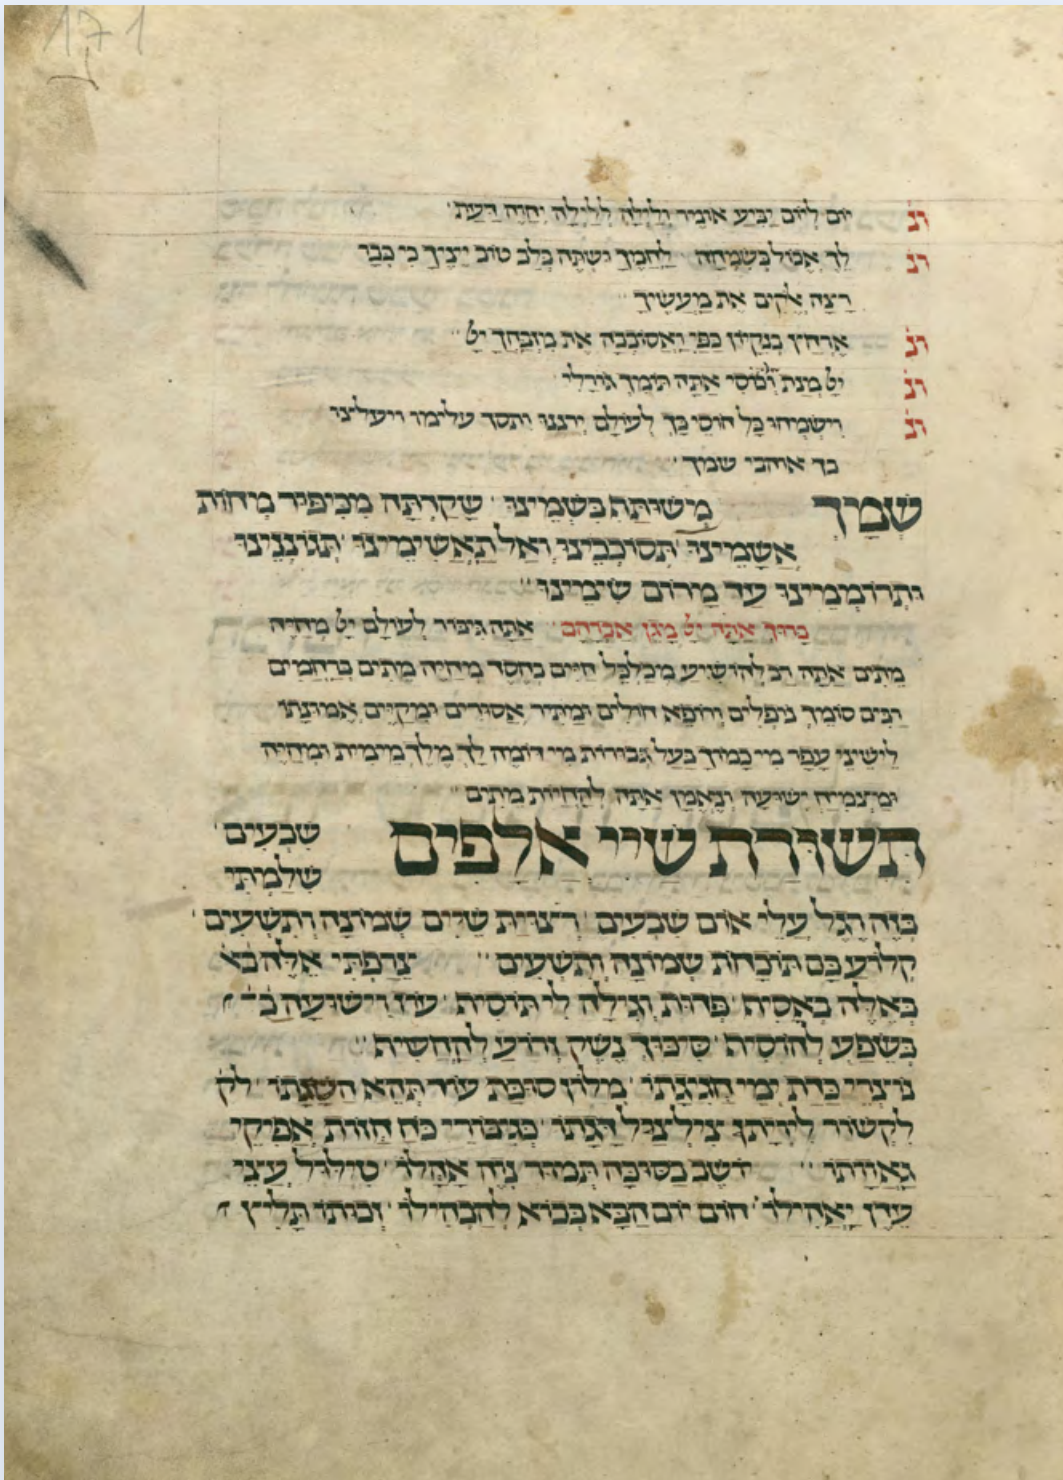 171
ונ׳ יום ליום יביע אומר ולילה ללילה יחוה דעת
ונ׳ לך אכול בשמחה לחמך ושתה בלב טוב יינך כי כבר
רצה אלקים את מעשיך
ונ׳ ארחץ בנקיון כפי ואסובבה את מזבחך
ונ׳ מנת וכוסי אתה תומך גורלי
ונ׳ וישמחו כל חוסי בך לעולם ירננו ותסך עלימו ויעלצו
בך אוהבי שמך
שמך משותת בשמינו שקרתה מכיפור מחות
אשמינו תסובבינו ואל תאשימינו תגוננינו
ותרוממינו עד מרום שימינו
ברוך אתה מגן אברהם אתה גיבור לעולם מחיה
מתים אתה רב להושיע מכלכל חיים בחסד מחיה מתים ברחמים
רבים סומך נופלים ורופא חולים ומתיר אסורים ומקיים אמונתו
לישיני עפר מי כמוך בעל גבורות מי דומה לך מלך מימית ומחיה
ומצמיח ישועה ונאמן אתה להחיות מתים
תשורת שי אלפים שבעים
שלמתי
בזה הגל עלי אום שבעים רצויית שיים שמונה ותשעים
קלוע בם תוכחות שמונה ותשעים צרפתי אלה
באלה באסית פדות וגילה לי תוסית עוז וישועה
בשפע להוסית סיכוך נשק ורוע להחשית
נוצרי בדת ימי חגיגתו מלון סוכת עוד תהא השגתו
לקשור לויתן צילצול דגתו כגיבורי כח חזות אפיקי
גאוותו יושב בסוכה תמור נוה אהלו טילול עצי
עדן יאהילו חום יום הבא בבוא להבהילו זכותו תליץ